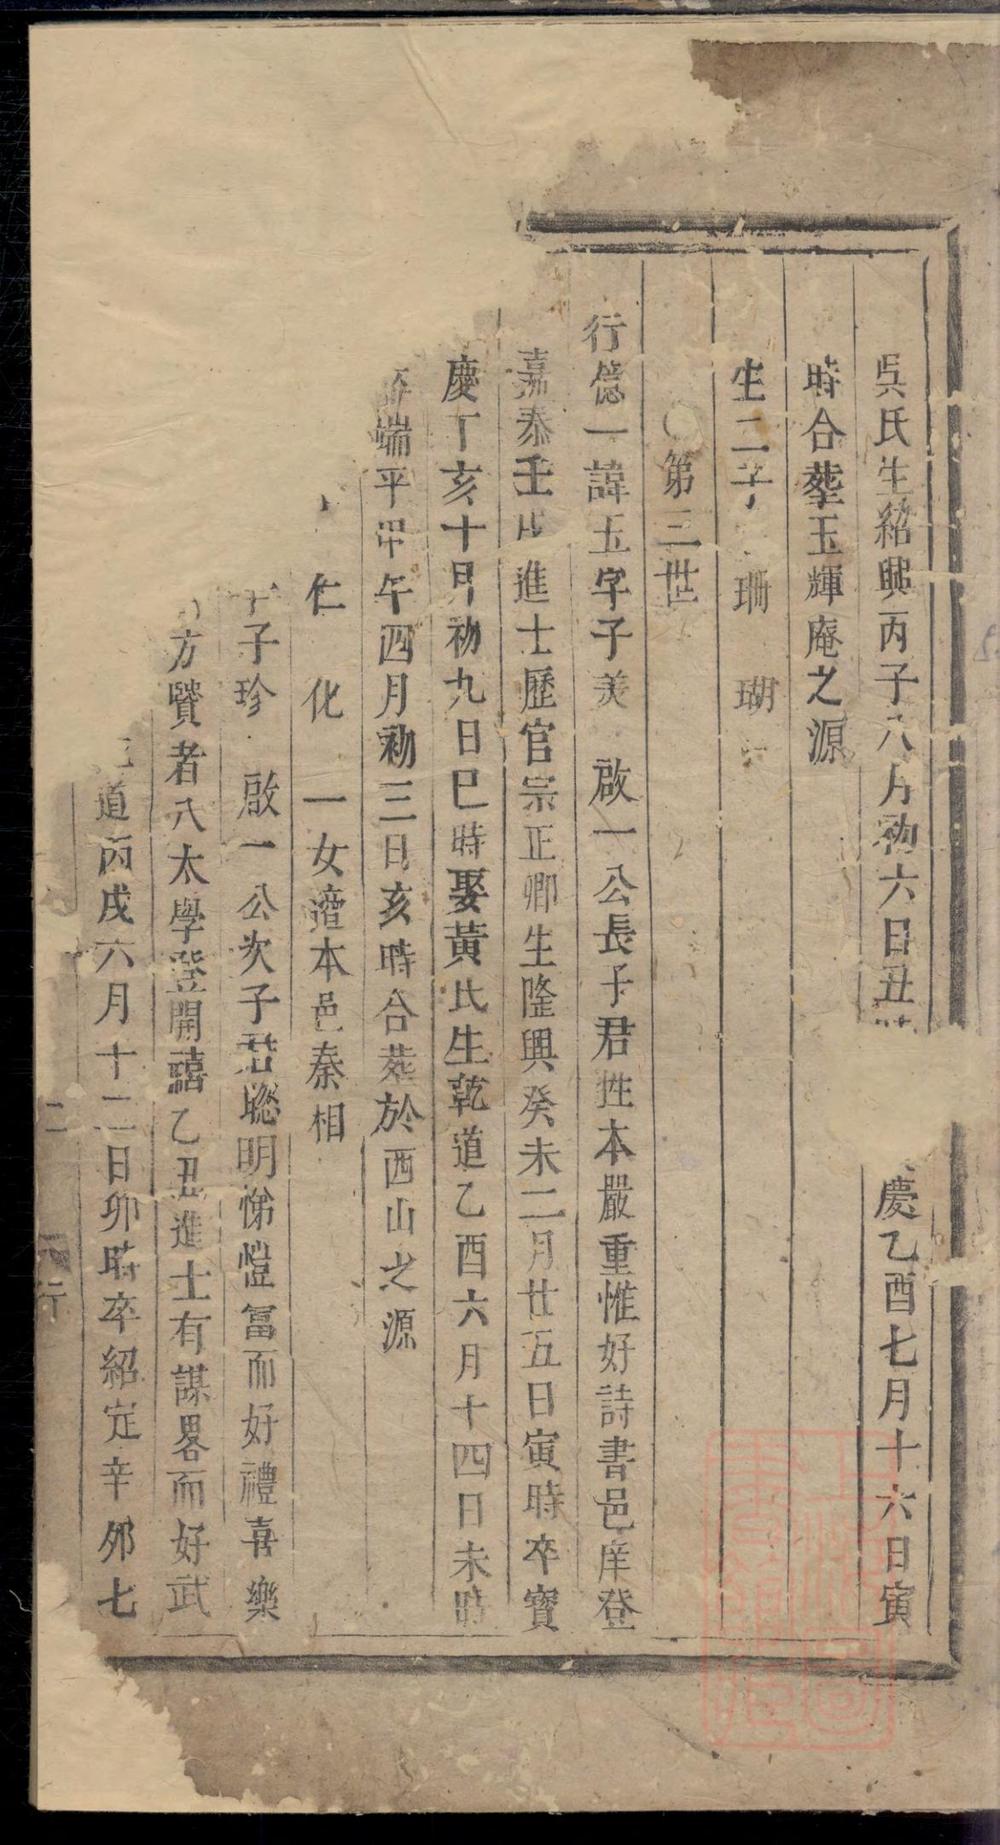 吳氏生紹興丙子八月初六日丑時 慶乙酉七月十六日寅
時合塟玉輝庵之源
生二子 珊 瑚
○第三世
行億一諱玉字子美 啟一公長子君性本嚴重惟好詩書邑庠登
嘉泰壬戌進士歷官宗正卿生隆興癸未二月廿五日寅時卒寳
慶丁亥十月初九日巳時娶黃氏生乾道乙酉六月十四日未時
卒端平甲午四月初三日亥時合塟於西山之源
仁 化 一女適本邑秦相
字子珍 啟一公次子君聦明悌愷富而好禮喜樂
方賢者入太學登開禧乙丑進士有謀畧而好武
道丙戌六月十二日卯時卒紹定辛夘七
二
行